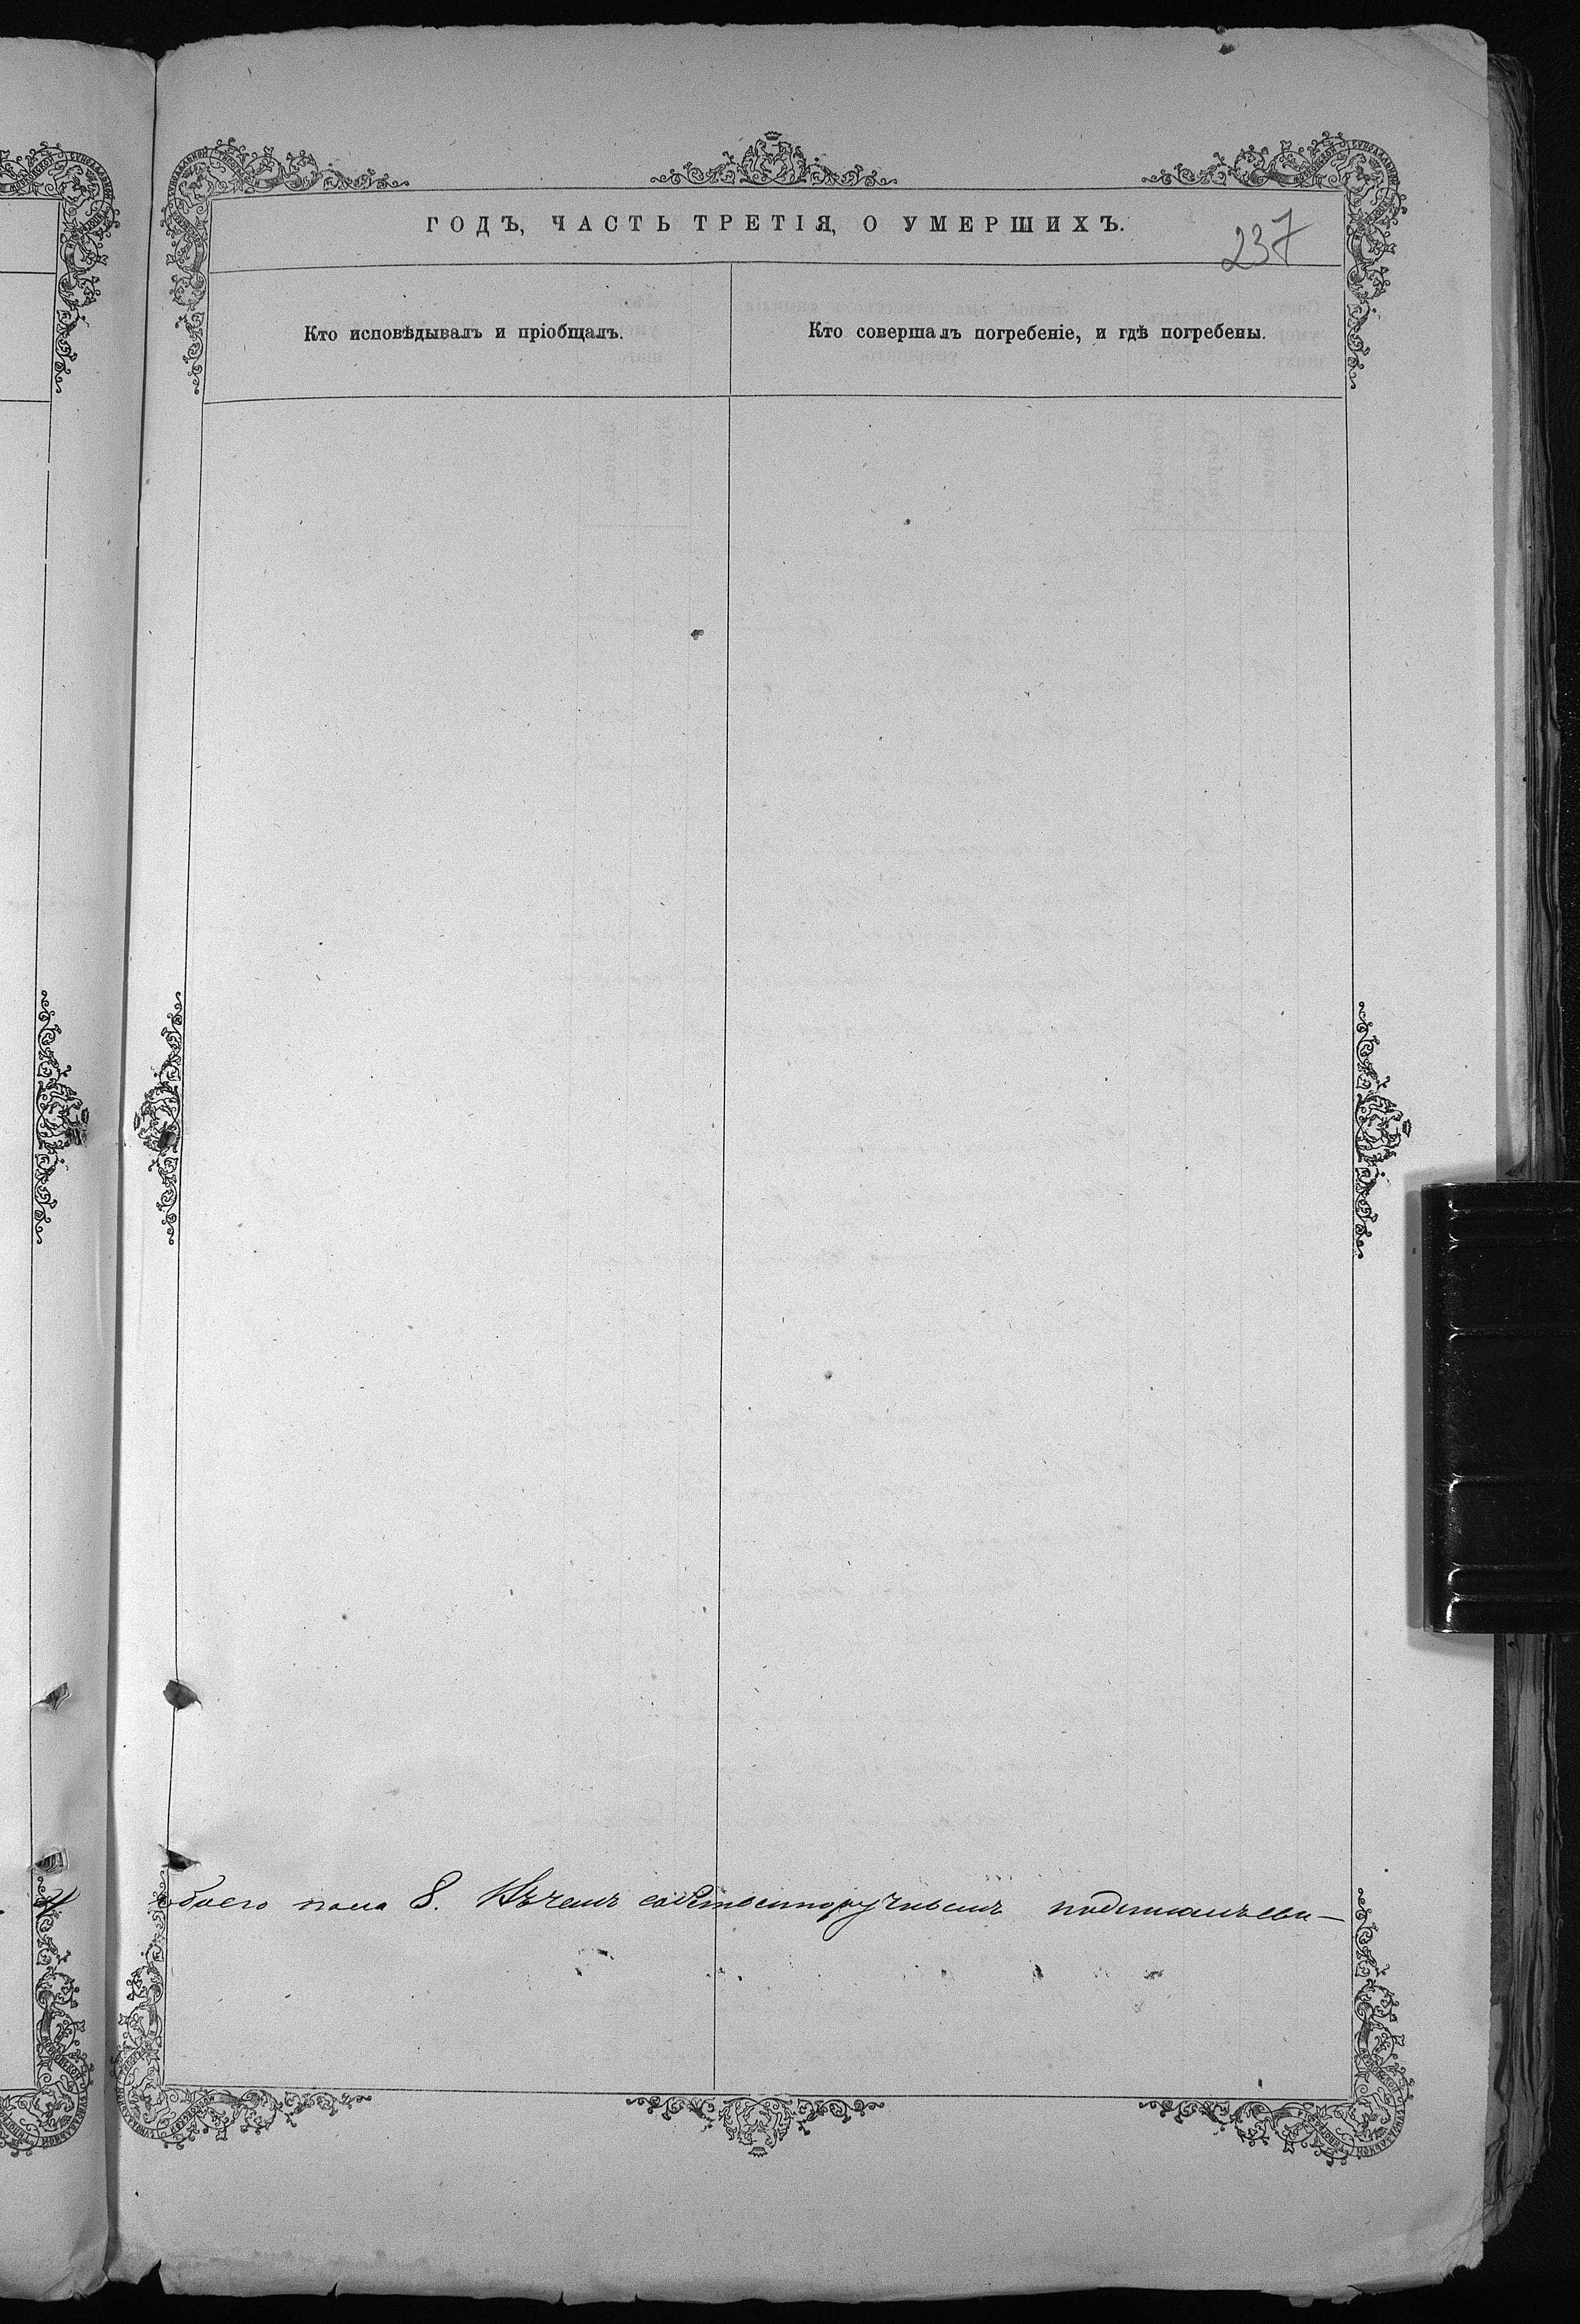 ГОДЪ, ЧАСТЬ ТРЕТІЯ, О УМЕРШИХЪ.
237
Кто исповѣдывалъ и пріобщалъ.
Кто совершалъ погребеніе, и гдѣ погребены.
обоего пола 8. Въ чемъ собственноручнымъ подписомъ сви—